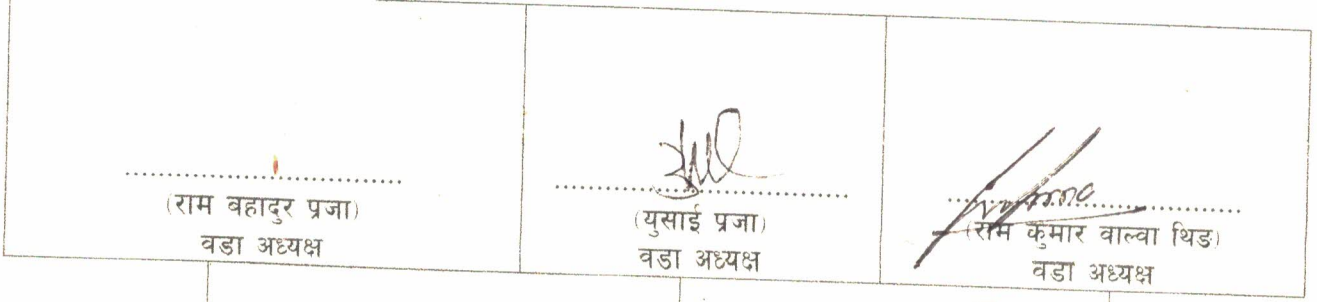 (राम वहादुर प्रजा)
वडा अध्यक्ष
(युसाई प्रजा)
वडा अध्यक्ष
(राम कुमार वाल्वा थिङ)
वडा अध्यक्ष